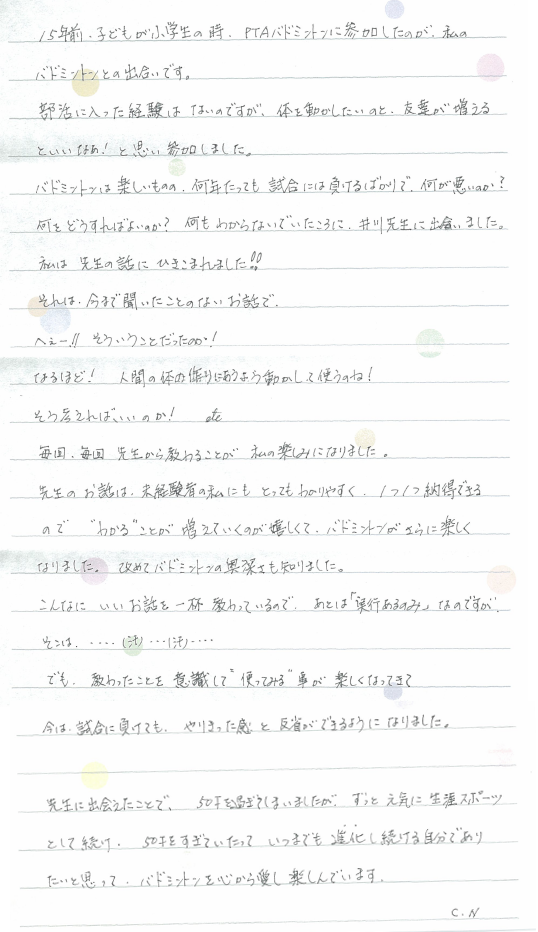 15年前、子どもが小学生の時、PTAバドミントンに参加したのが、私の
バドミントンとの出合いです。
部活に入った経験はないのですが、体を動かしたいのと、友達が増える
といいなぁ！と思い参加しました。
バドミントンは楽しいものの、何年たっても試合には負けるばかりで、何が悪いのか？
何をどうすればよいのか？何もわからないでいたころに、井川先生に出会いました。
私は先生の話にひきこまれました!!
それは、今まで聞いたことのないお話で、
へぇー!!そういうことだったのか！
なるほど！人間の体の作りにあうよう動かして使うのね！
そう考えればいいのか！etc
毎回、毎回先生から教わることが私の楽しみになりました。
先生のお話は、未経験者の私にもとってもわかりやすく、1つ1つ納得できる
ので"わかる"ことが増えていくのが嬉しくて、バドミントンがさらに楽しく
なりました。改めてバドミントンの奥深さも知りました。
こんなにいいお話を一杯教わっているので、あとは「実行あるのみ」なのですが、
そこは、‥‥(汗)‥‥(汗)‥‥
でも、教わったことを意識して"使ってみる"事が楽しくなってきて
今は、試合に負けても、やりきった感と反省ができるようになりました。
先生に出会えたことで、50才を過ぎてしまいましたが、ずっと元気に生涯スポーツ
として続け、50才をすぎていたっていつまでも進化し続ける自分であり
たいと思って、バドミントンを心から愛し楽しんでいます。
C.N